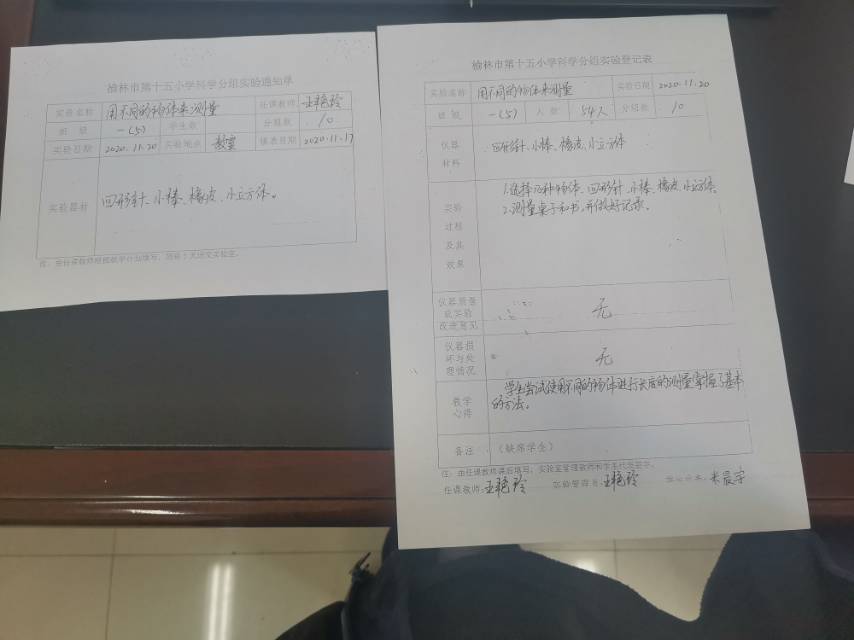 榆林市第十五小学科学分组实验通知单
实验名称 用不同的物体来测量 任课教师 王艳玲
班 级 一(5) 学生数 分组数 10
实验日期 2020.11.20 实验地点 教室 填表日期 2020.11.17
实验器材 回形针、小棒、橡皮、小立方体。
注：由任课教师根据教学计划填写，提前三天送交实验室。
榆林市第十五小学科学分组实验登记表
实验名称 用不同的物体来测量 实验日期 2020.11.20
班 级 一(5) 人 数 54人 分组数 10
仪器
材料
回形针、小棒、橡皮、小立方体
实验
过程
及其
效果
1.选择几种物体、回形针、小棒、橡皮、小立方体
2.测量桌子和书,并做好记录。
仪器质量
或实验
改进意见
无
仪器损
坏与处
理情况
无
教学
心得
学生尝试使用不同的物体进行长度的测量掌握了基本
的方法。
备注 (缺席学生)
注：由任课教师课后填写，实验室管理教师和学生代表签字。
任课教师:王艳玲 实验管理员:王艳玲 米晨宇